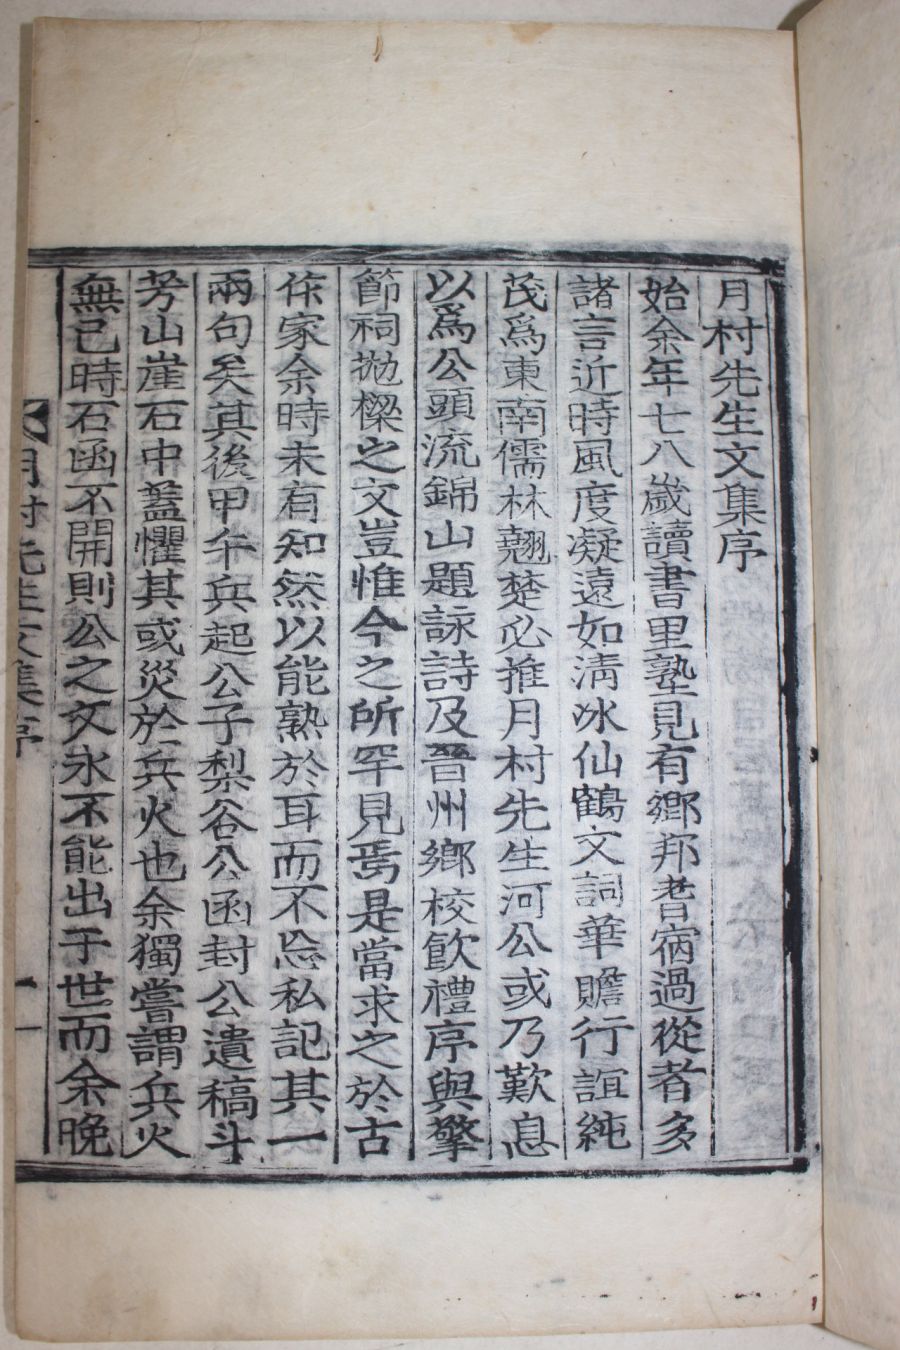 月村先生文集序
始余年七八歲讀書里塾見有鄉邦耆宿過從者多
諸言近時風度凝遠如淸氷仙鶴文詞華贍行誼純
茂爲東南儒林翹楚必推月村先生河公或乃歎息
以爲公頭流錦山題詠詩及晉州鄉校飮禮序與擎
節祠拋樑之文豈惟今之所罕見焉是當求之於古
作家余時未有知然以能熟於耳而不忘私記其一
兩句矣其後甲午兵起公子梨谷公函封公遺稿斗
芳山崖石中蓋懼其或災於兵火也余獨嘗謂兵火
無已時石函不開則公之文永不能出于世而余晩
月村先生文集序 一